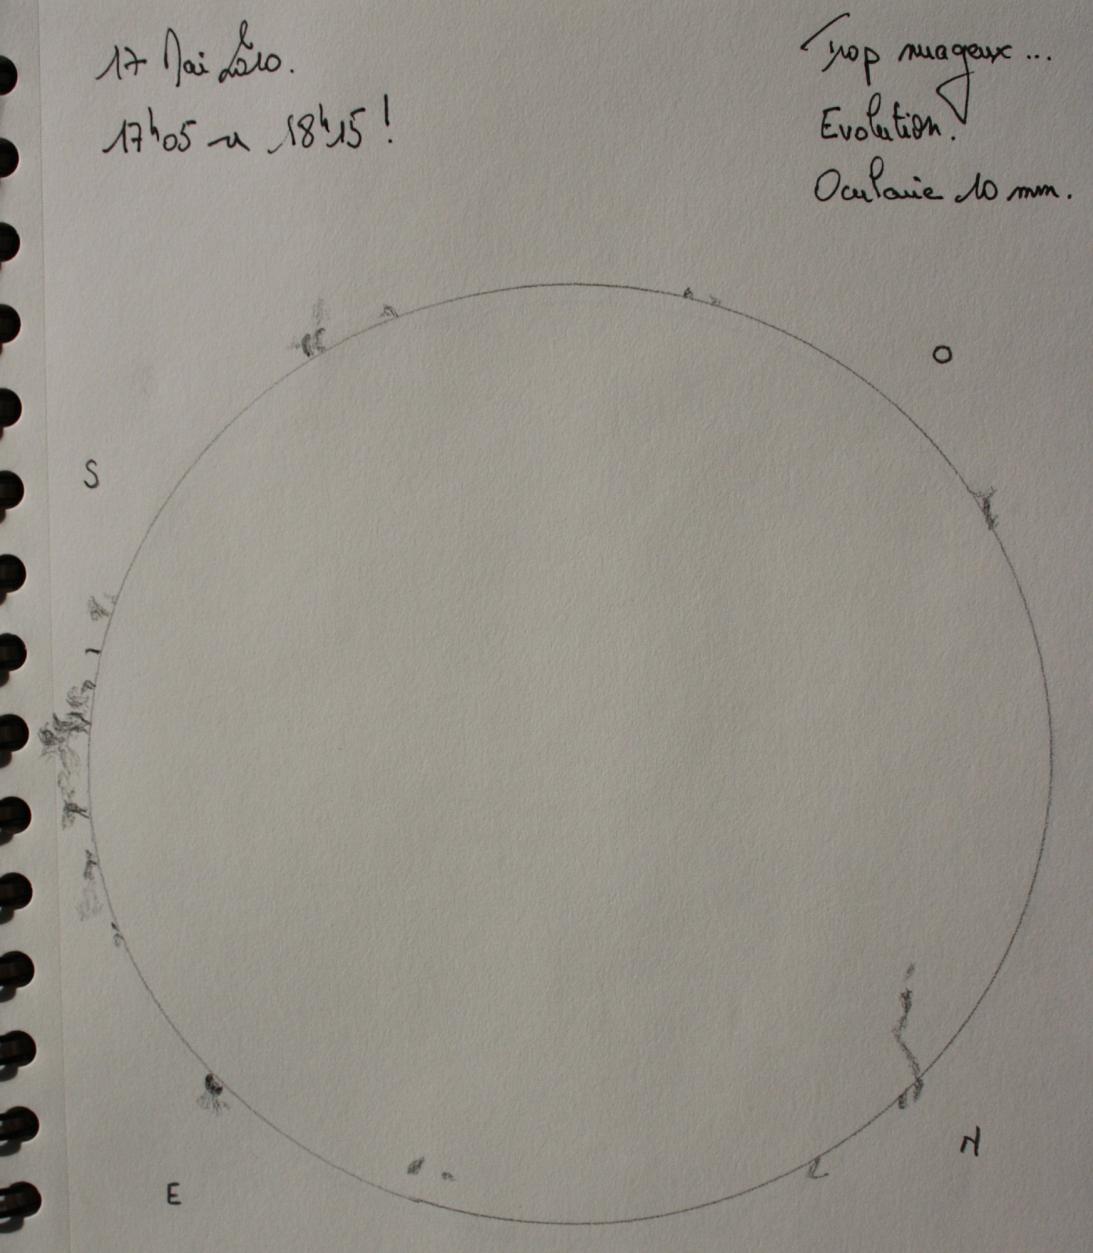 17 Mai 2010.
17h05 à 18h15 !
Trop nuageux ...
Evolution.
Oculaire 10 mm.
O
S
N
E